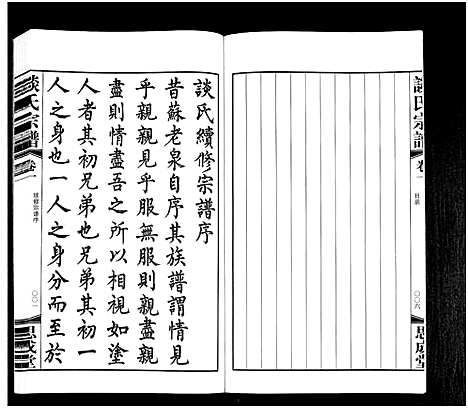 談氏宗譜
卷一
目錄
〇〇六
思成堂
談氏續修宗譜序
昔蘇老泉自序其族譜謂情見
乎親親見乎服無服則親盡親
盡則情盡吾之所以相視如塗
人者其初兄弟也兄弟其初一
人之身也一人之身分而至於
談氏宗譜
卷一
續修宗譜序
〇〇一
思成堂